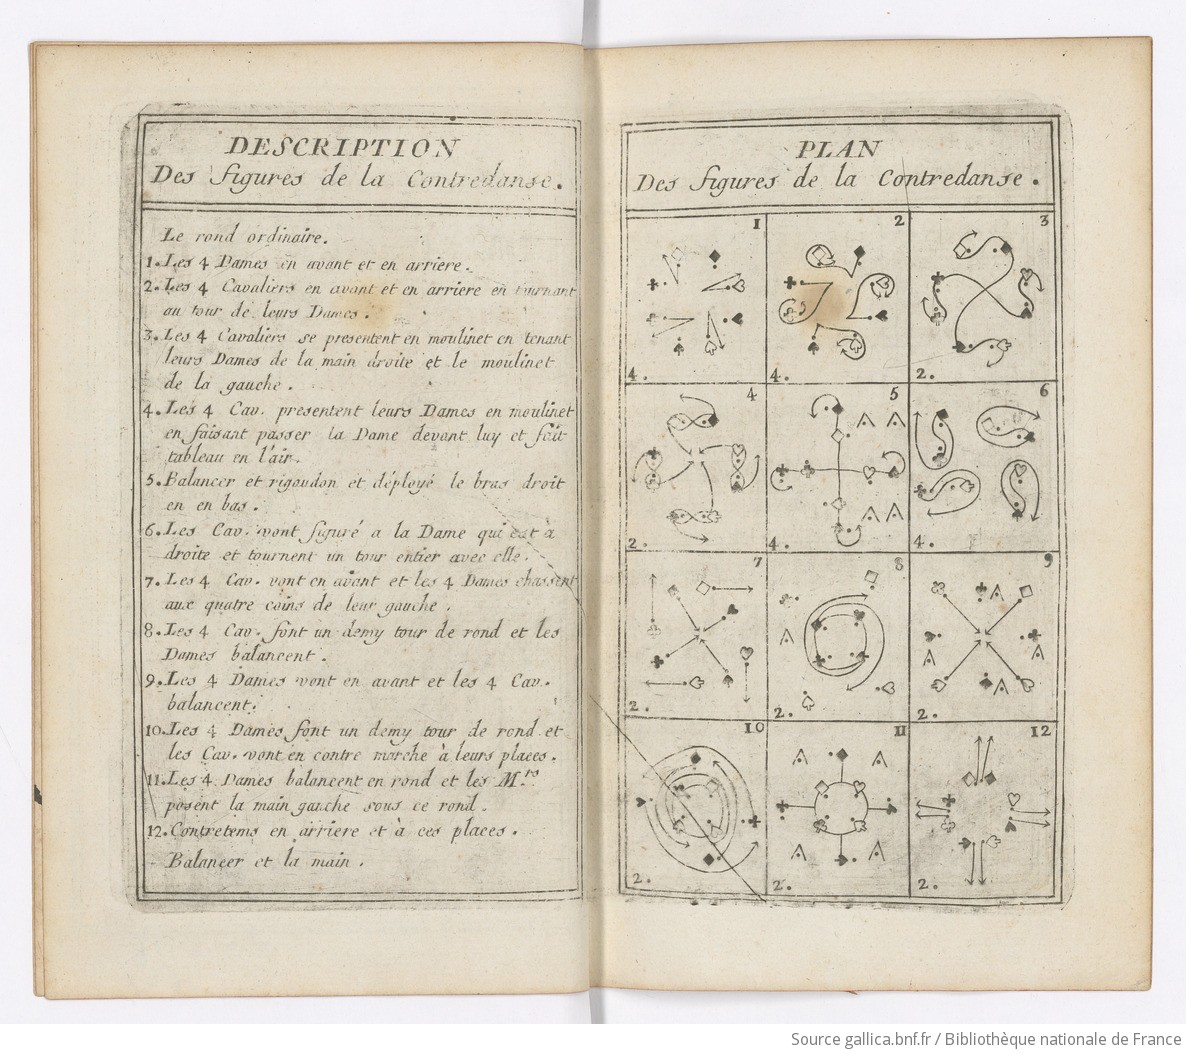 DESCRIPTION
Des figures de la Contredanse.
Le rond ordinaire.
1. Les 4 Dames en avant et en arriere.
2. Les 4 Cavaliers en avant et en arriere en tournant
au tour de leurs Dames.
3. Les 4 Cavaliers se presentent en moulinet en tenant
leurs Dames de la main droite et le moulinet
de la gauche.
4. Les 4 Cav. presentent leurs Dames en moulinet
en faisant passer la Dame devant luy et fait
tableau en l'air.
5. Balancer et rigoudon et déployé le bras droit
en en bas.
6. Les Cav. vont figuré a la Dame qui est à
droite et tournent un tour entier avec elle.
7. Les 4 Cav. vont en avant et les 4 Dames chassent
aux quatre coins de leur gauche.
8. Les 4 Cav. font un demy tour de rond et les
Dames balancent.
9. Les 4 Dames vont en avant et les 4 Cav.
balancent.
10. Les 4 Dames font un demy tour de rond et
les Cav. vont en contre marche à leurs places.
11. Les 4 Dames balancent en rond et les M.rs
posent la main gauche sous ce rond.
12. Contretems en arriere et à ces places.
Balancer et la main.
PLAN
Des figures de la Contredanse.
1 2 3
4. 4. 2.
4 5 6
2. 4. 4.
7 8 9
2. 2. 2.
10 11 12
2. 2. 2.
Source gallica.bnf.fr / Bibliothèque nationale de France